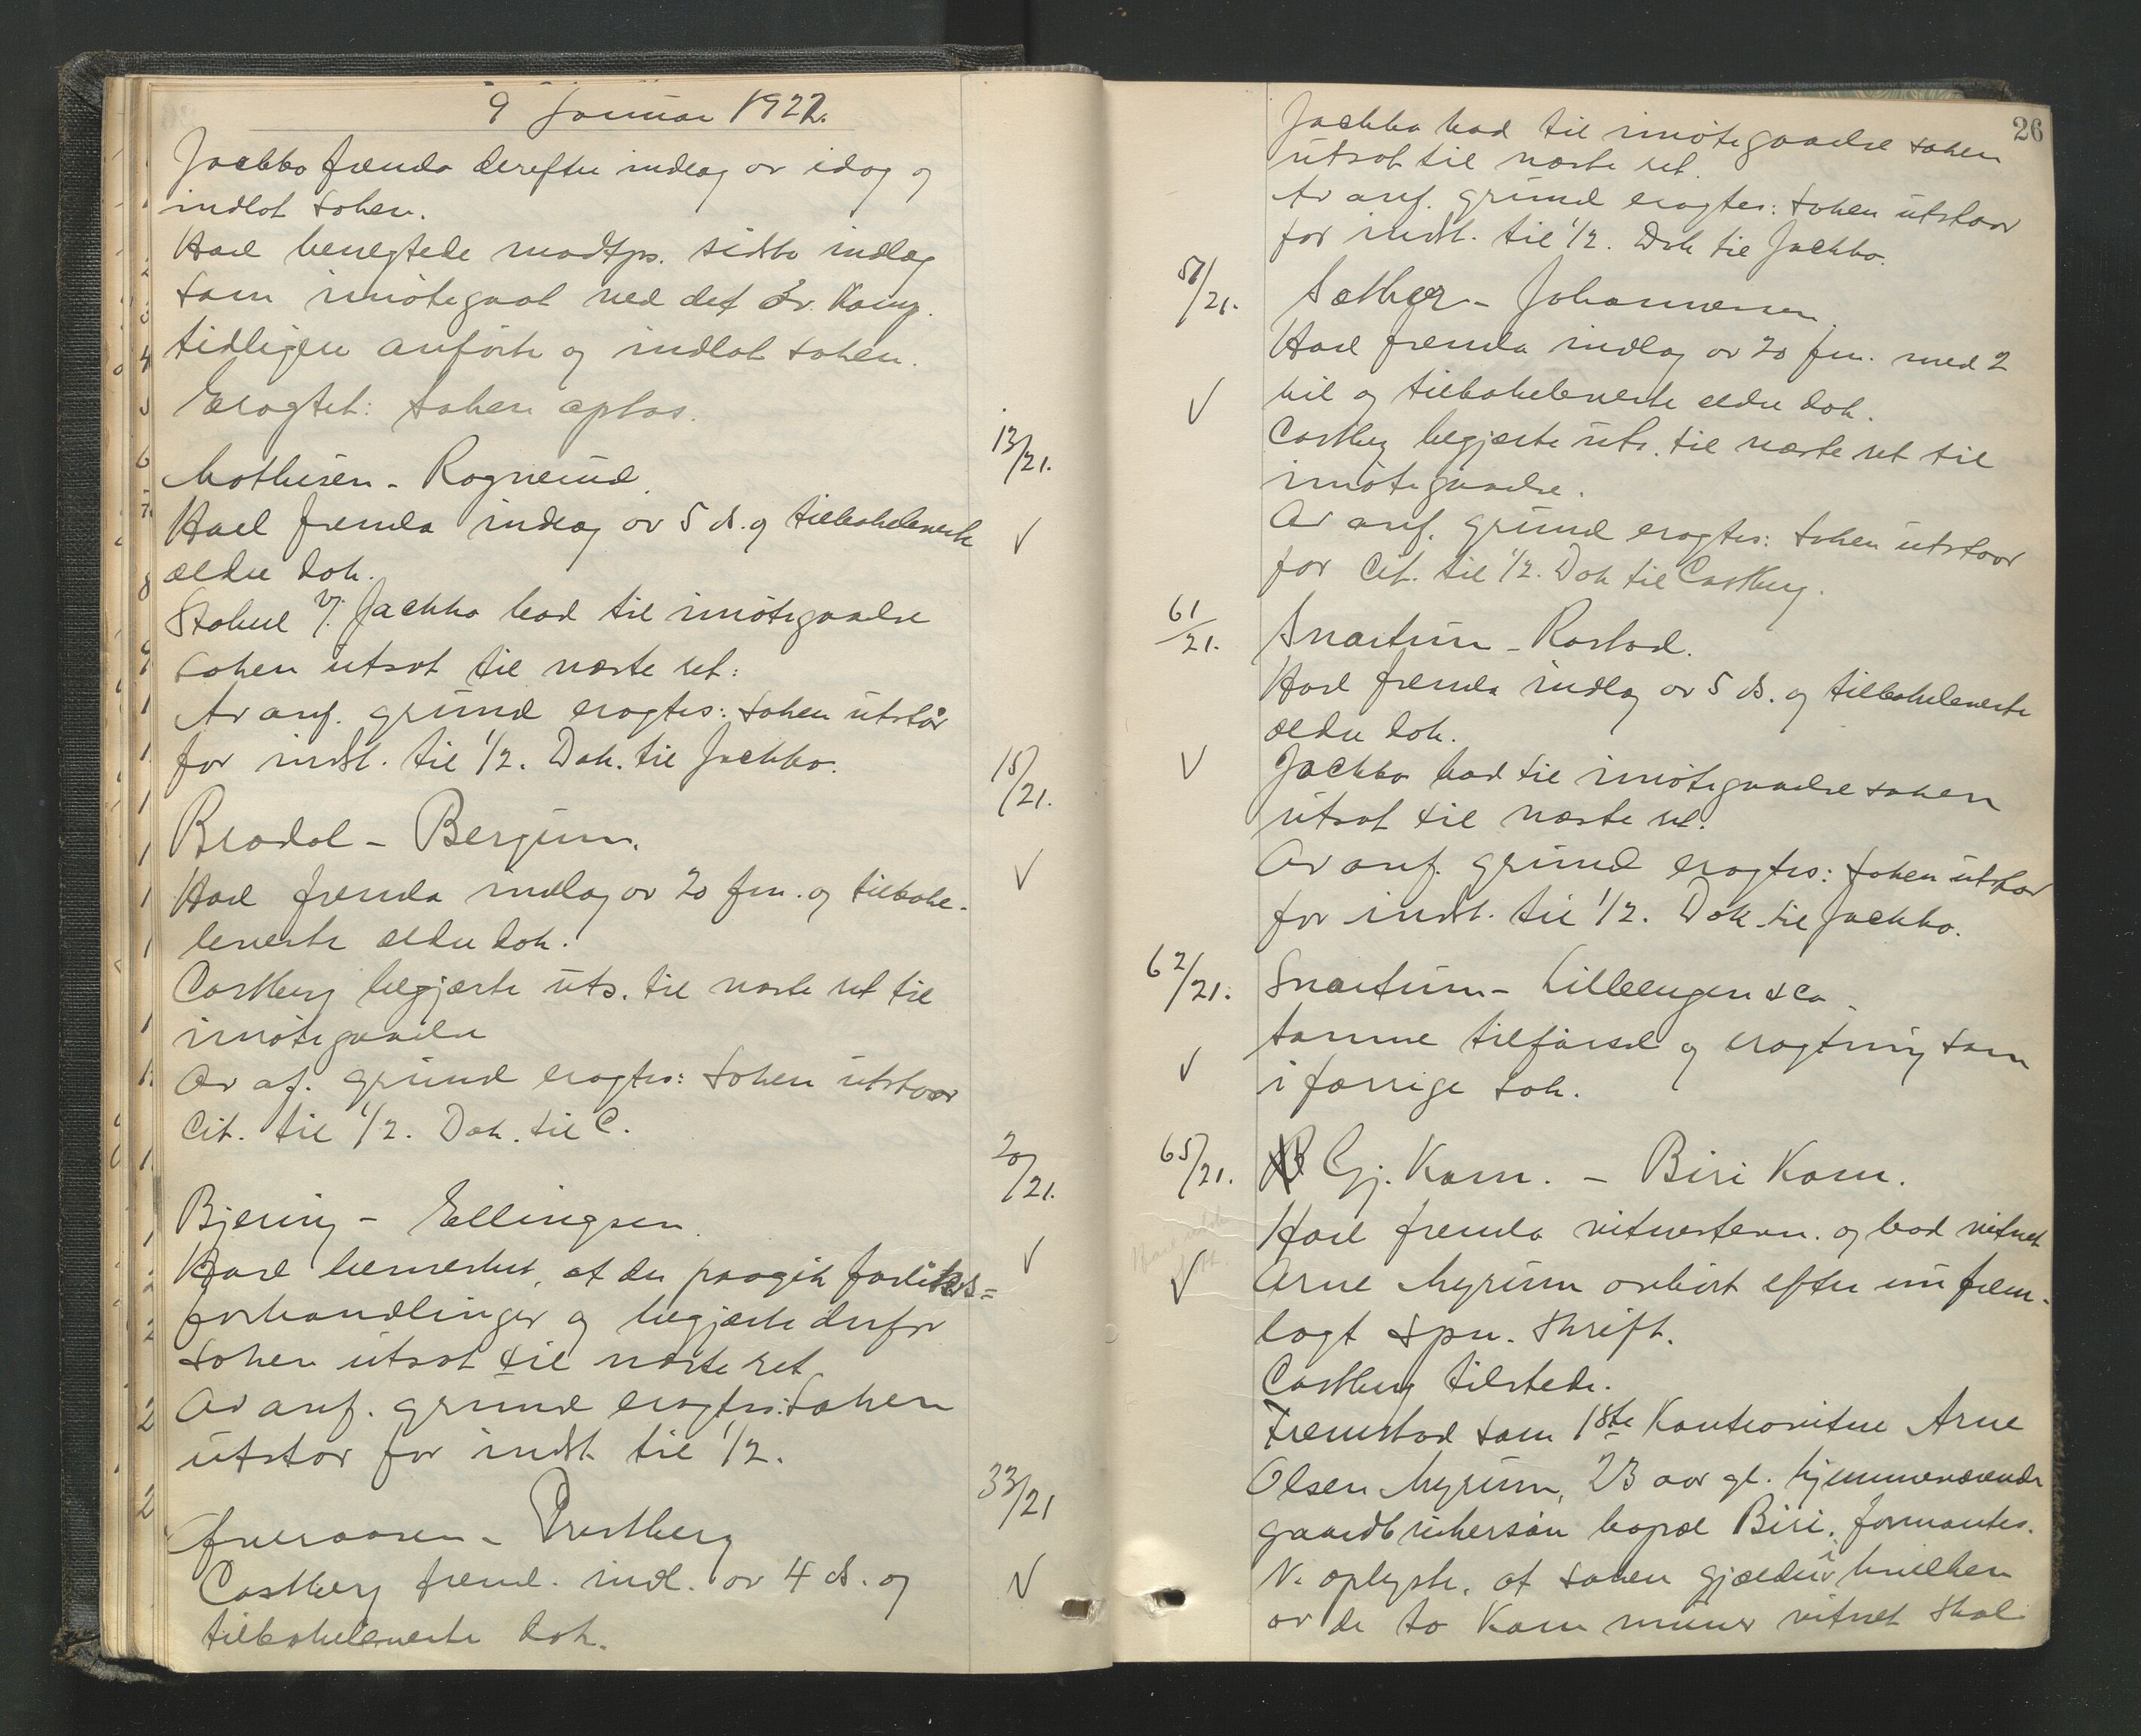 9 Januar 1922.
Jackbo fremla derefter indlæg av idag og
indlot saken.
Hoel benegtede modtps. sidste indlæg
som imøtegaat ved det av Komp.
tidligere anførte og indlot saken.
Eragtet: saken optas.
13/21.
Mothisen - Rognerud.
Hoel fremla indlæg av 5 ds. og tilbakeleverte
ældre dok.
Stabul v/ Jackbo bad til imøtegaaelse
saken utsat til næste ret.
Av anf. grund eragtes: Saken utstår
for indst. til 1/2. Dok. til Jackbo.
15/21.
Bradal - Bergum.
Hoel fremla indlæg av 20 fm. og tilbake-
leverte ældre dok.
Castberg begjærte uts. til næste ret til
imøtegaaelse
Av af. grund eragtes: Saken utstaar
Cit. til 1/2. Dok. til C.
20/21.
Bjerring - Ellingsen
Hoel bemerket, at der paagik forliks=
forhandlinger og begjærte derfor
saken utsat til næste ret
Av anf. grund eragtes: Saken
utstar for indst. til 1/2.
33/21
- Prestberg
Castberg freml. indl. av 4 ds. og
tilbakeleverte dok.
26
Jackbo bad til imøtegaaelse saken
utsat til næste ret.
Av anf. grund eragtes: Saken utstaar
for indst. til 1/2. Dok til Jackbo.
57/21. Sæther - Johannessen.
Hoel fremla indlæg av 20 fm. med 2
bil og tilbakeleverte ældre dok.
Castberg begjærte uts. til næste ret til
imøtegaaelse.
Av anf. grund eragtes: Saken utstaar
for Cit. til 1/2. Dok til Castberg.
61/21. Snartum - Rostad.
Hoel fremla indlæg av 5 ds. og tilbakeleverte
ældre dok.
Jackbo bad til imøtegaaelse saken
utsat til næste ret.
Av anf. grund eragtes: Saken utstar
for indst. til 1/2. Dok til Jackbo.
62/21. Snartum - Lilleengen & Co
Samme tilførsel og eragtning som
i forrige sak.
65/21. Gj. Kom. - Biri Kom.
Hoel fremla vitnestevn. og bad vitnet
Arne Myrum avhørt efter nu frem-
lagt spm. skrift.
Castberg tilstede.
Fremstod som 1ste Kontravitne Arne
Olsen Myrum, 23 aar gl. hjemmeværende
gaardbrukersøn bopæl Biri, formantes.
V. oplyste, at saken gjælder i hvilken
av de to Kommuner vitnet skal